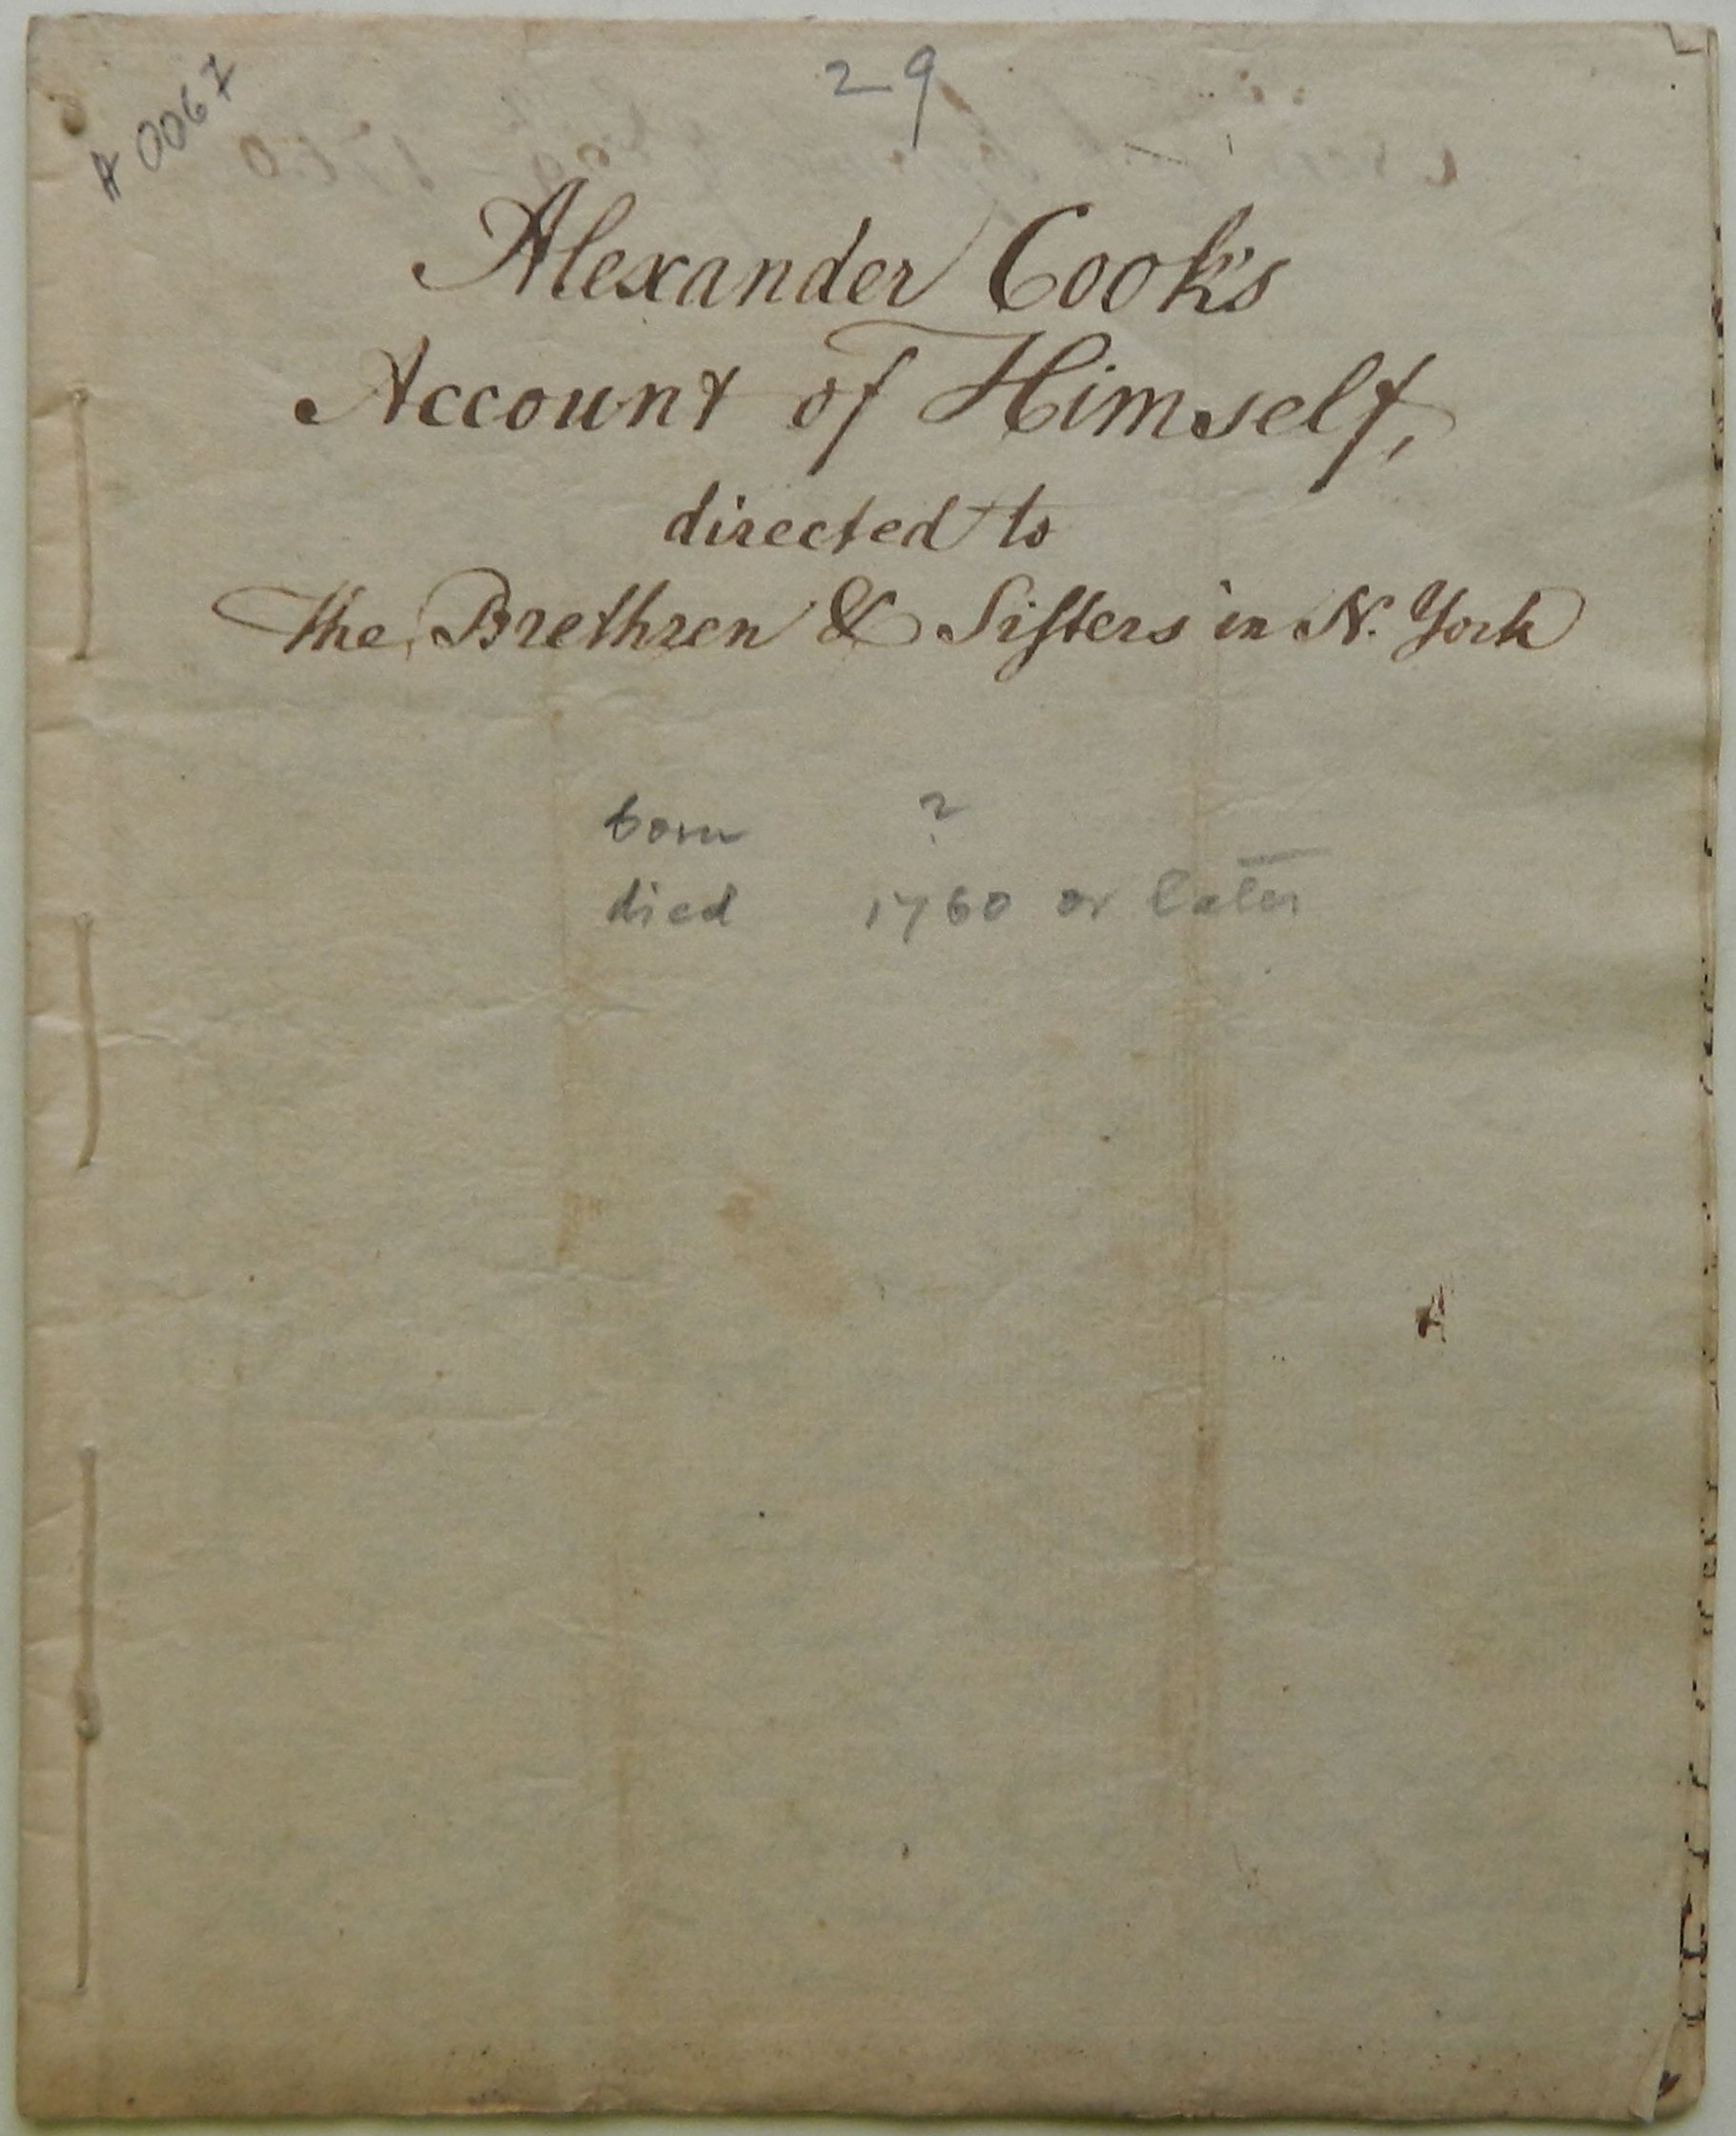 A 0067
29
Alexander Cook's
Account of Himself,
directed to
The Brethren & Sisters in N. York
born ?
died 1760 or later